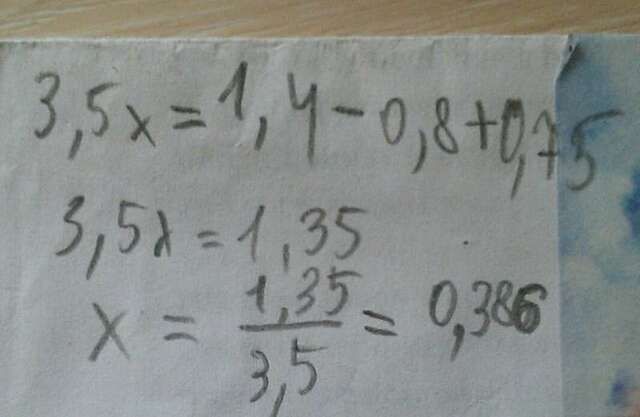 3,5x = 1,4 - 0,8 + 0,75
3,5x = 1,35
x = 1,35/3,5 = 0,386